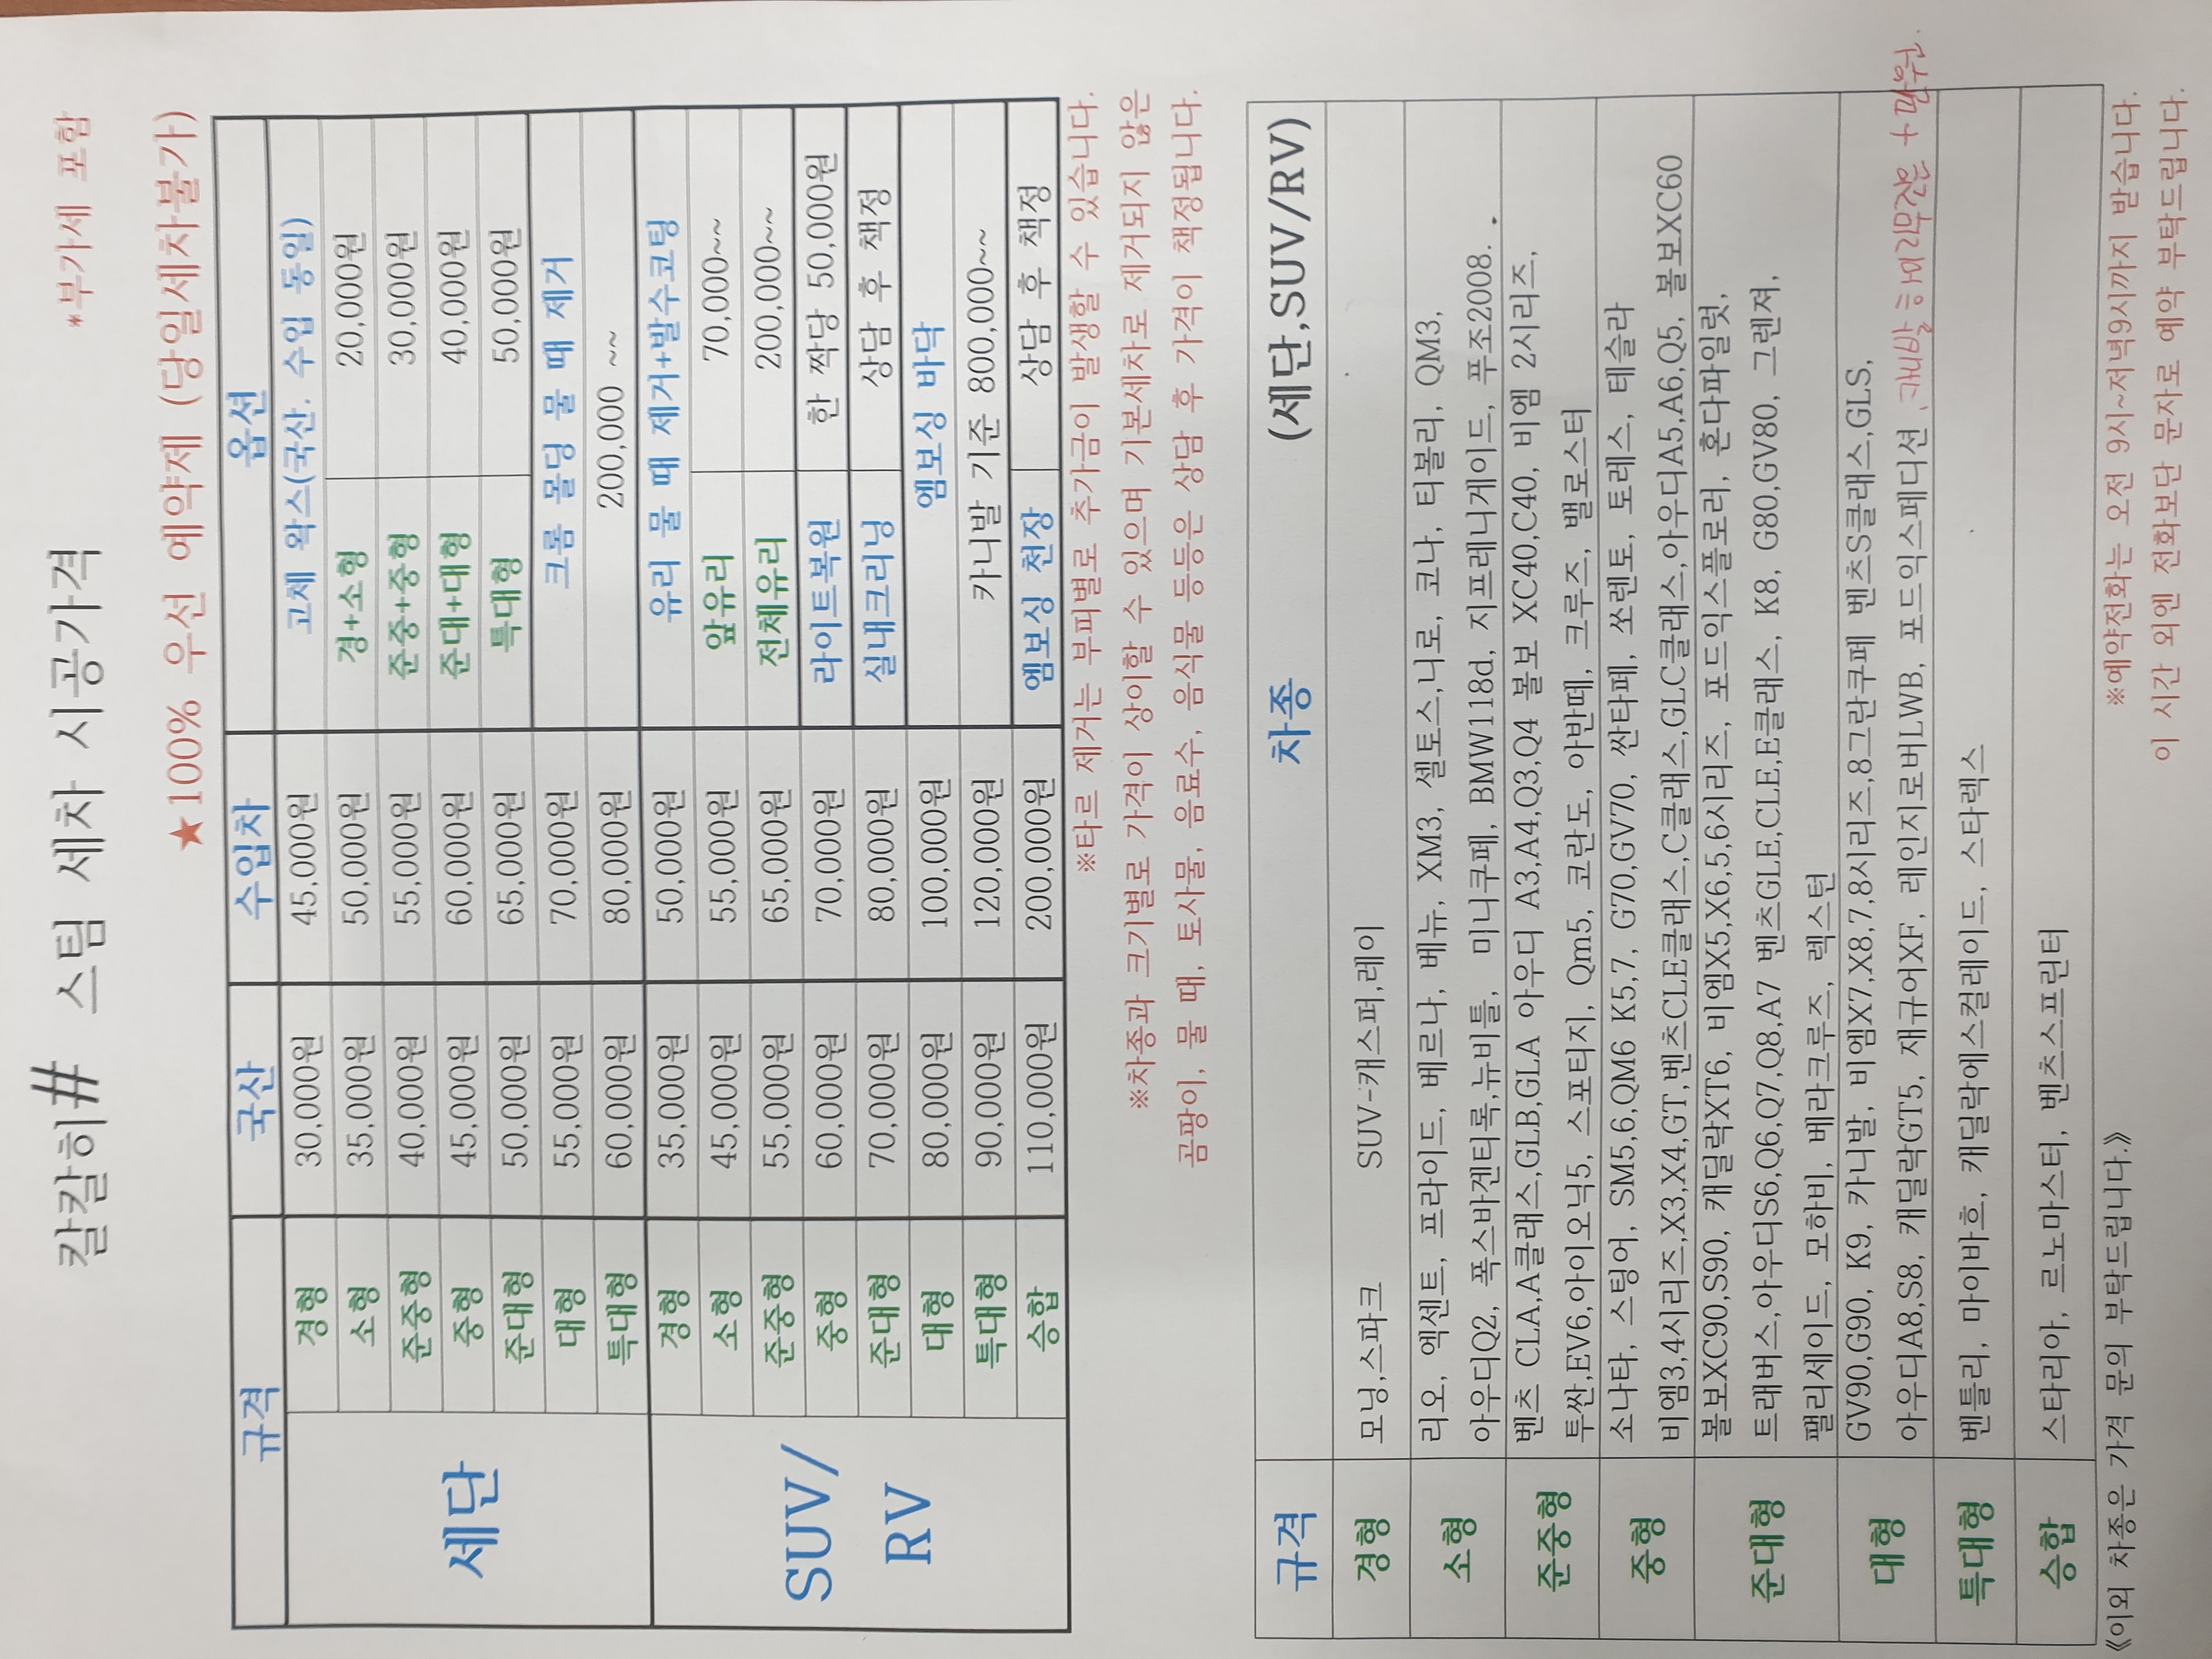 칼칼히# 스팀 세차 시공가격
*부가세 포함
★100% 우선 예약제 (당일세차불가)
규격 국산 수입차 옵션
세단
경형 30,000원 45,000원 고체 왁스(국산. 수입 동일)
소형 35,000원 50,000원 경+소형 20,000원
준중형 40,000원 55,000원 준중+중형 30,000원
중형 45,000원 60,000원 준대+대형 40,000원
준대형 50,000원 65,000원 특대형 50,000원
대형 55,000원 70,000원 크롬 몰딩 물 때 제거
특대형 60,000원 80,000원 200,000 ~~
SUV/
RV
경형 35,000원 50,000원 유리 물 때 제거+발수코팅
소형 45,000원 55,000원 앞유리 70,000~~
준중형 55,000원 65,000원 전체유리 200,000~~
중형 60,000원 70,000원 라이트복원 한 짝당 50,000원
준대형 70,000원 80,000원 실내크리닝 상담 후 책정
대형 80,000원 100,000원 엠보싱 바닥
특대형 90,000원 120,000원 카니발 기준 800,000~~
승합 110,000원 200,000원 엠보싱 천장 상담 후 책정
※타르 제거는 부피별로 추가금이 발생할 수 있습니다.
※차종과 크기별로 가격이 상이할 수 있으며 기본세차로 제거되지 않은
곰팡이, 물 때, 토사물, 음료수, 음식물 등등은 상담 후 가격이 책정됩니다.
규격 차종 (세단,SUV/RV)
경형 모닝,스파크 SUV-캐스퍼,레이
소형
리오, 엑센트, 프라이드, 베르나, 베뉴, XM3, 셀토스,니로, 코나, 티볼리, QM3,
아우디Q2, 폭스바겐티록,뉴비틀, 미니쿠페, BMW118d, 지프레니게이드, 푸조2008.
준중형
벤츠 CLA,A클래스,GLB,GLA 아우디 A3,A4,Q3,Q4 볼보 XC40,C40, 비엠 2시리즈,
투싼,EV6,아이오닉5, 스포티지, Qm5, 코란도, 아반떼, 크루즈, 밸로스터
중형
소나타, 스팅어, SM5,6,QM6 K5,7, G70,GV70, 싼타페, 쏘렌토, 토레스, 테슬라
비엠3,4시리즈,X3,X4,GT,벤츠CLE클래스,C클래스,GLC클래스,아우디A5,A6,Q5, 볼보XC60
준대형
볼보XC90,S90, 캐딜락XT6, 비엠X5,X6,5,6시리즈, 포드익스플로러, 혼다파일럿,
트래버스,아우디S6,Q6,Q7,Q8,A7 벤츠GLE,CLE,E클래스, K8, G80,GV80, 그렌져,
팰리세이드, 모하비, 베라크루즈, 렉스턴
대형
GV90,G90, K9, 카니발, 비엠X7,X8,7,8시리즈,8그란쿠페 벤츠S클래스,GLS,
아우디A8,S8, 캐딜락GT5, 재규어XF, 레인지로버LWB, 포드익스페디션
특대형 벤틀리, 마이바흐, 캐딜락에스컬레이드, 스타렉스
승합 스타리아, 르노마스터, 벤츠스프린터
《이외 차종은 가격 문의 부탁드립니다.》
※예약전화는 오전 9시~저녁9시까지 받습니다.
이 시간 외엔 전화보단 문자로 예약 부탁드립니다.